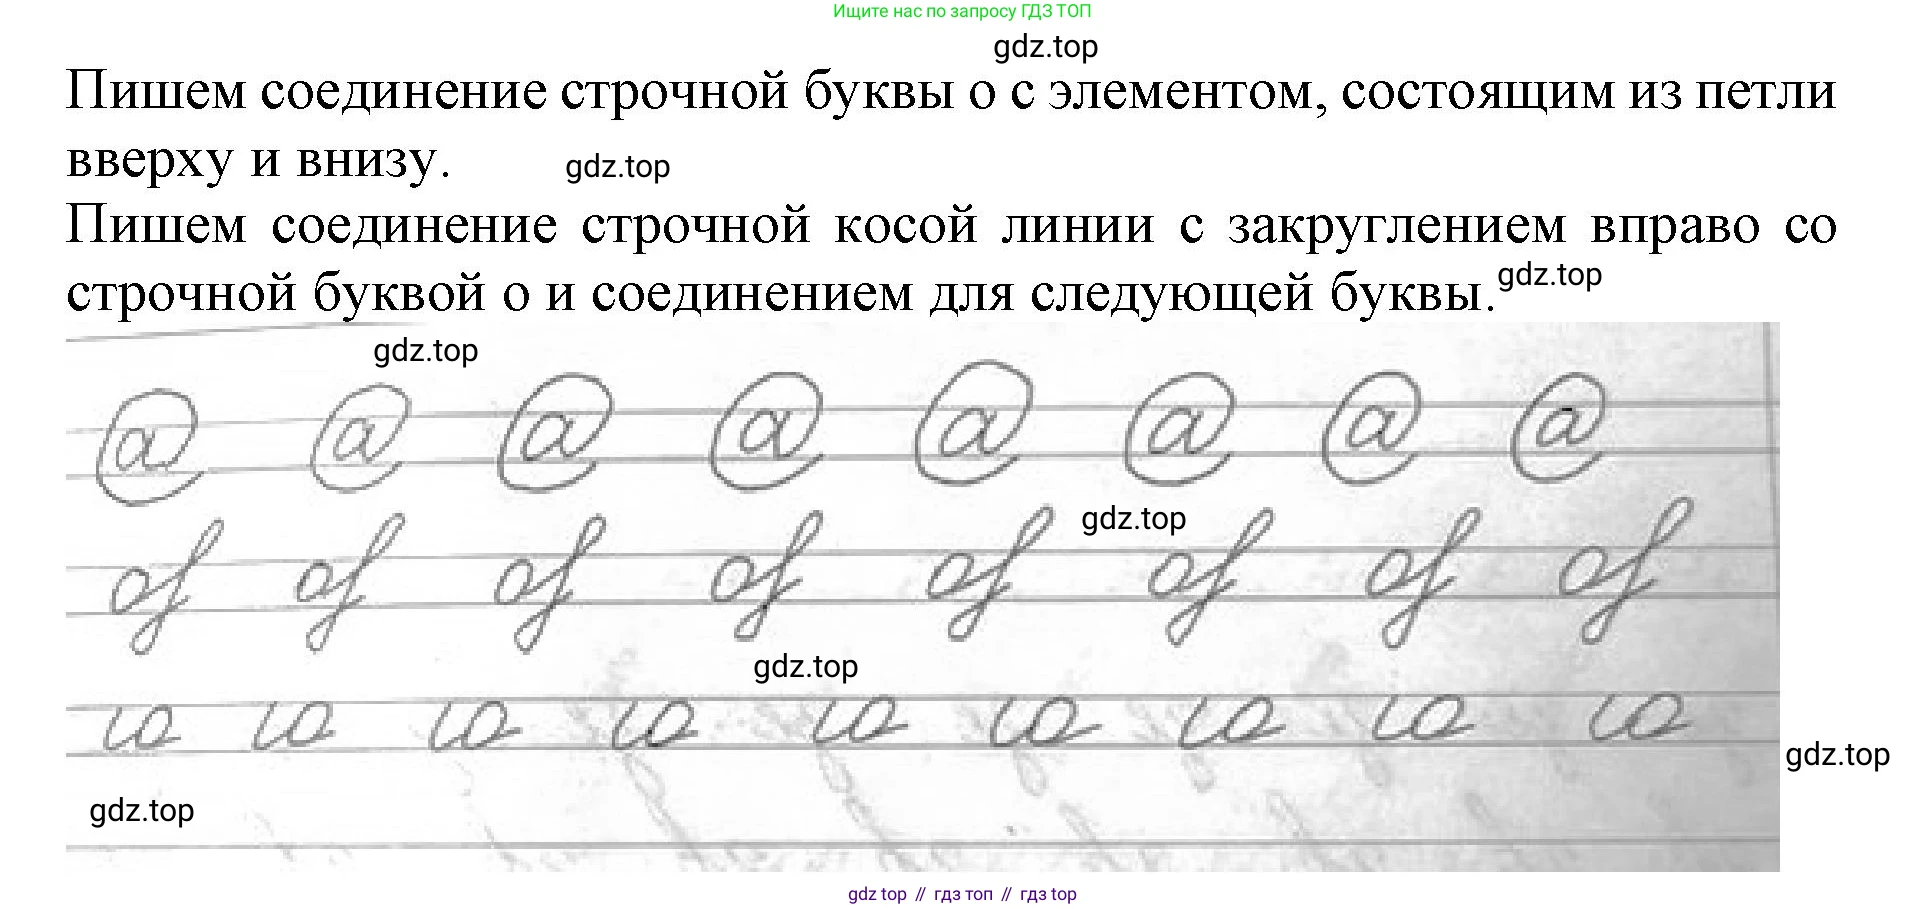 Ищите нас по запросу ГДЗ ТОП
gdz.top
Пишем соединение строчной буквы о с элементом, состоящим из петли
вверху и внизу.
gdz.top
Пишем соединение строчной косой линии с закруглением вправо со
строчной буквой о и соединением для следующей буквы.
gdz.top
gdz.top
@ @ @ @ @ @ @ @
gdz.top
gdz.top
gdz.top
gdz.top
gdz top // гдз топ // гдз top